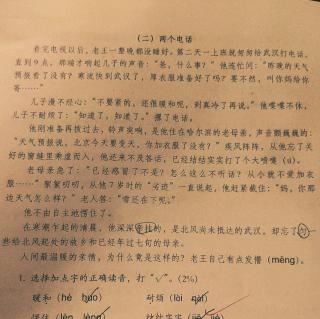 (二)两个电话
看完电视以后，老王一整晚都没睡好。第二天一上班就匆匆给武汉打电话，
直到9点，那端才响起儿子的声音："爸，什么事？"他连忙问："昨晚的天气
预报看了没有？寒流快到武汉了，厚衣服准备好了吗？要不然，叫你妈给你
寄……"
儿子漫不经心："不要紧的，还很暖和呢，到真冷了再说。"他喋喋不休，
儿子不耐烦了："知道了，知道了。"搁了电话。
他刚准备再拨过去，铃声突响，是他住在哈尔滨的老母亲，声音颤巍巍的：
"天气预报说，北京今天要变天，你加衣服了没有？"疾风阵阵，从他忘了关
好的窗缝里乘虚而入，他还来不及答话，已经结结实实打了个大喷嚏（tì）。
老母亲急了："已经感冒了不是？怎么这么不听话？从小就不爱加衣
服……"絮絮叨叨，从他7岁时的"劣迹"一直说起，他赶紧截住："妈，你那
边天气怎么样？"老人答："雪还在下呢。"
他不由自主地愣住了。
在寒潮乍起的清晨，他深深牵挂的，是北风尚未抵达的武汉，却忘了匀一
些给北风起处的故乡和已经年过七旬的母亲。
人间最温暖的亲情，为什么竟是这样的？老王自己有点发懵（měng）。
1. 选择加点字的正确读音，打"√"。(2%)
暖和（hé huo） 耐烦（lài nài）